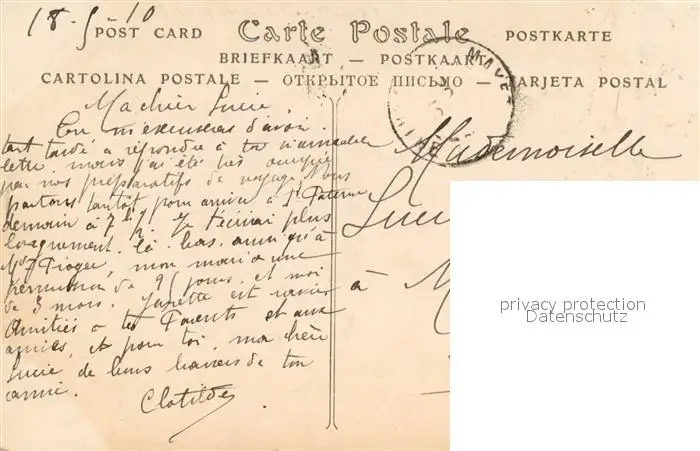 18-5-10
POST CARD Carte Postale POSTKARTE
BRIEFKAART — POSTKAART
CARTOLINA POSTALE — ОТКРЫТОЕ ПИСЬМО — TARJETA POSTAL
MAYE
Ma chère Lucie,
Tu m'excuseras d'avoir
tant tardé a répondre à ta
lettre mais j'ai été très occupée
par nos préparatifs de voyage. Nous
partons tantôt pour arriver à St Paterne
demain à 7h ½. Je t'écrirai plus
longuement là-bas ainsi qu'à
Mon mari a une
permission de 95 jours et moi
de 3 mois. est ravie
Amitiés a tes Parents et aux
amies, et pour toi, ma chère
Lucie de bons baisers de ton
amie.
Clotilde
Mademoiselle
Luci
à M
privacy protection
Datenschutz